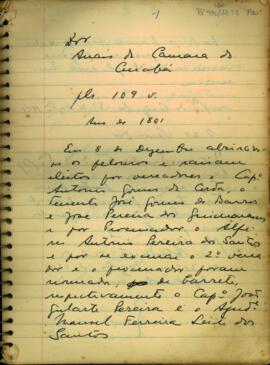 1
Dos
Anais da Camara de
Cuiabá
pls 109 v.
Ano de 1801
Em 8 de Dezembro abrirão-
se os pelouros e sairam
eleitos por vereadores o Capº
Antonio Gomes de
tenente José Gomes de Barros
e José Pereira dos Guimarães
e por Procurador o Alfe-
res Antonio Pereira dos Santos
e por se escusar o 2º verea-
dor e o procurador foram
nomeados, de barrete,
respectivamente o Capº João
Gularte Pereira e o Ajudº
Manuel Ferreira Leite dos
Santos